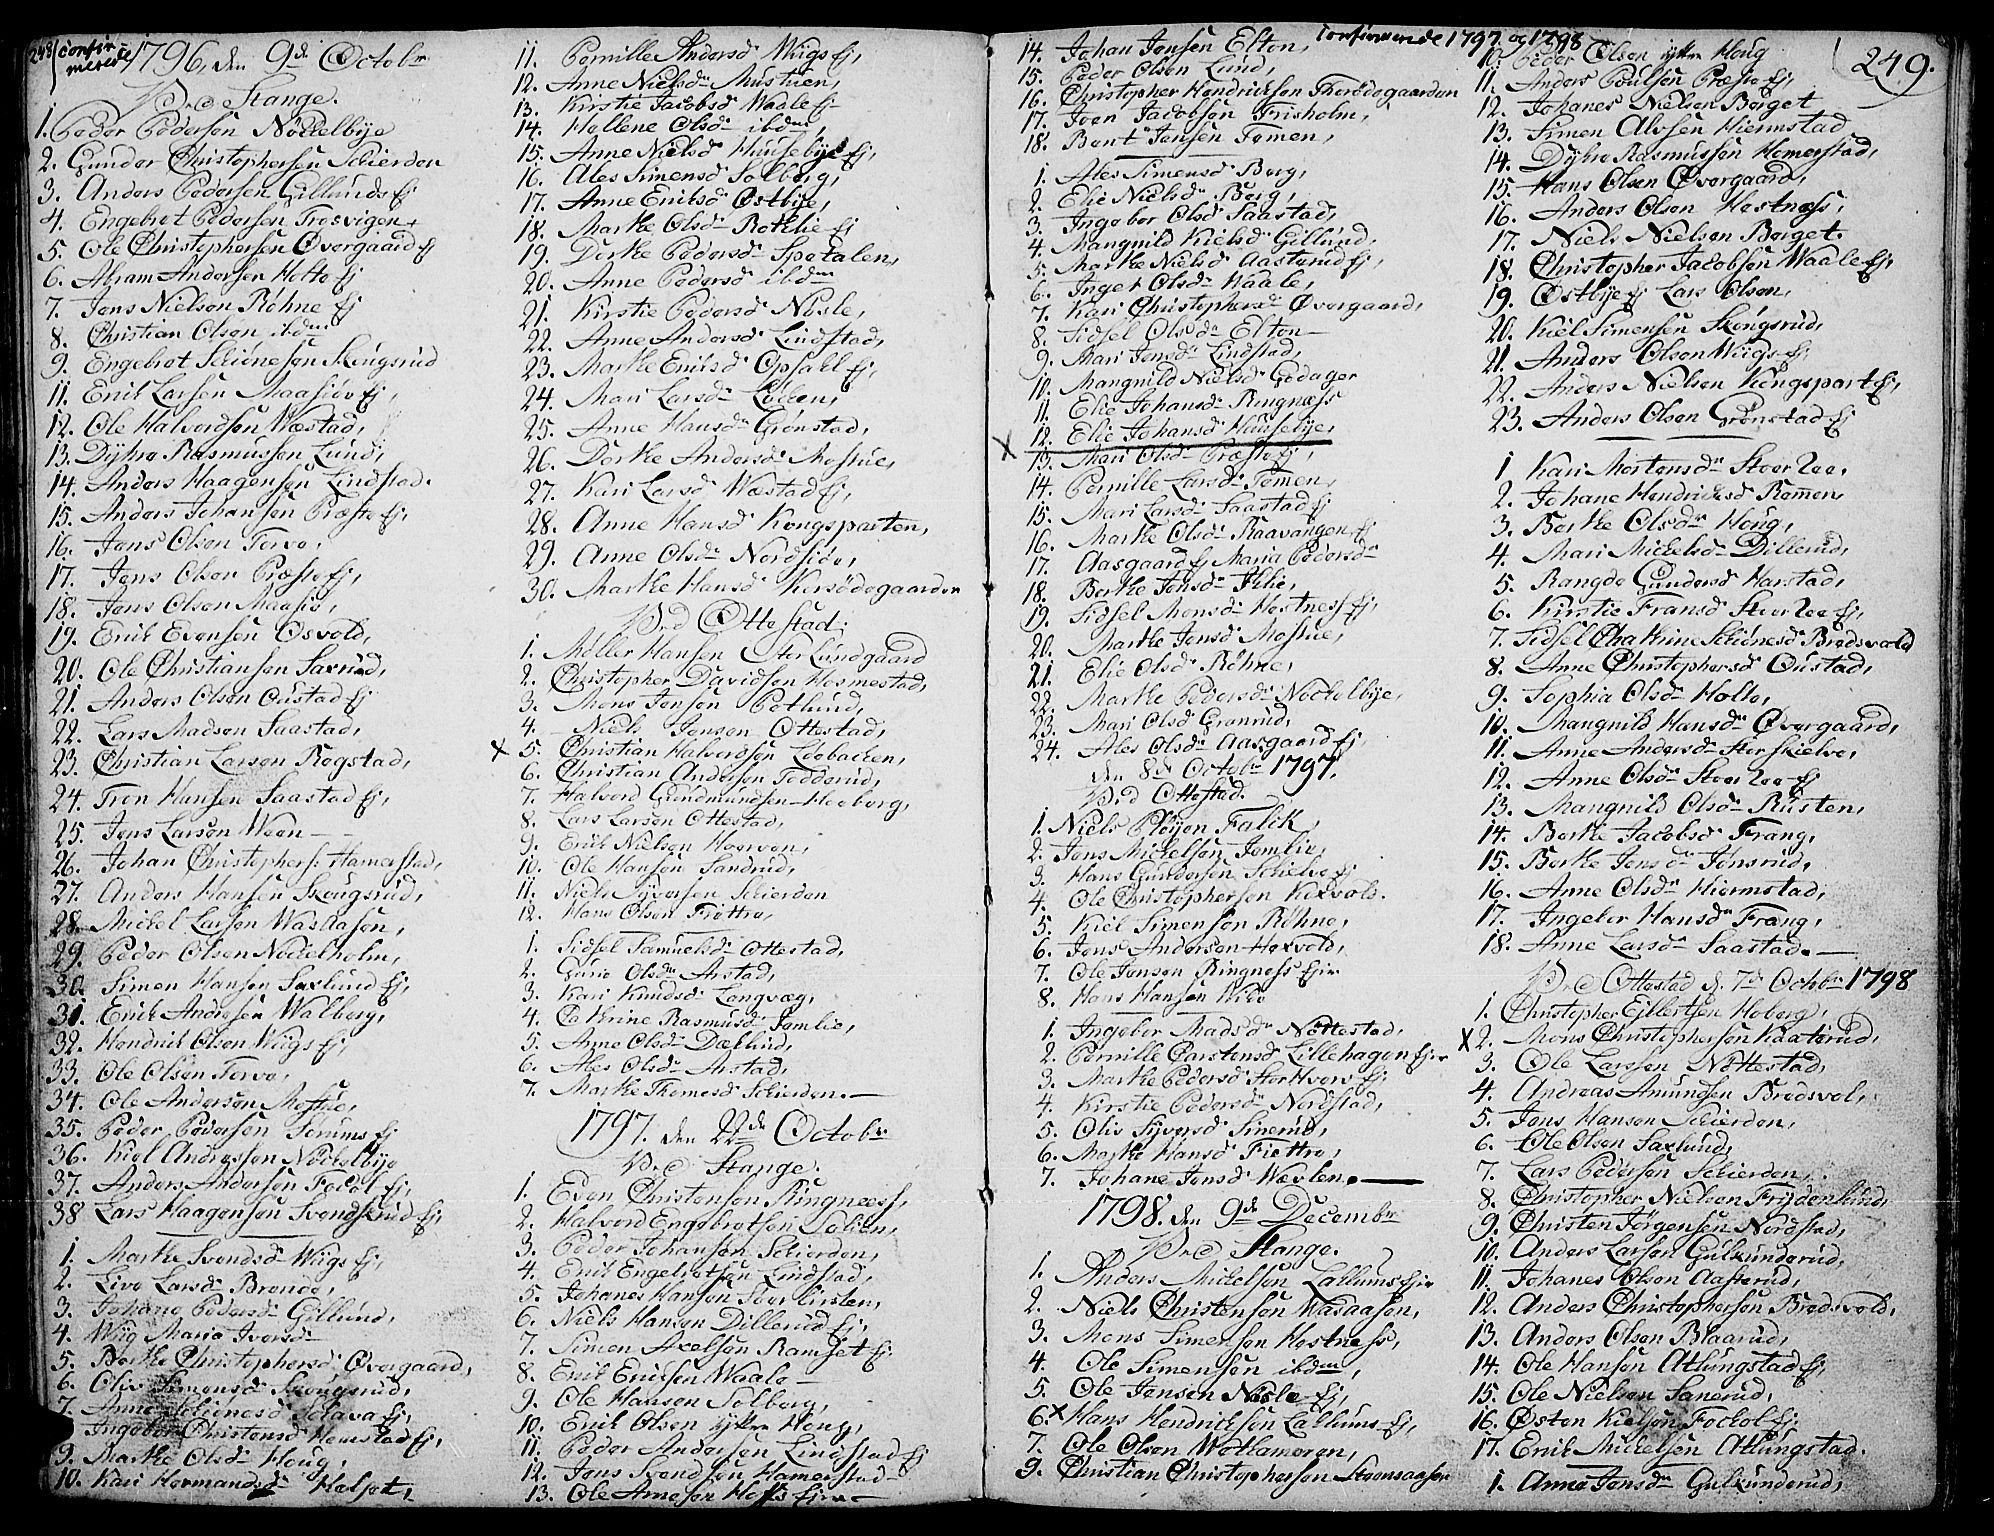 248 confirmerede
1796, den 9de Octobr
V. Stange.
1. Peder Pedersen Nöckelbye
2. Gunder Christophersen Schierden
3. Anders Pedersen Gillunds Ej
4. Engebret Pedersen Frosvigen
5. Ole Christophersen Øvergaard Ej
6. Abram Andersen Holte Ej
7. Jens Nielsen Röhne Ej
8. Christian Olsen ibdm
9. Engebret Schiönesön Skougsrud
11. Erik Larsen Maasiöv Ej,
12. Ole Halvordsen Wæstad,
13. Dyhre Rasmussen Lund,
14. Anders Haagensen Lindstad.
15. Anders Johansen Præste Ej,
16. Jens Olsen Torve,
17. Jens Olsen Præste Ej,
18. Jens Olsen Maasiö,
19. Erik Evensen Osvold,
20. Ole Christiansen Saxrud,
21. Anders Olsen Oustad Ej
22. Lars Madsen Saastad,
23. Christian Larsen Rogstad,
24. Tron Hansen Saastad Ej,
25. Jens Larsen Ween
26. Johan Christophers: Hamerstad,
27. Anders Hansen Skougsrud,
28. Mickel Larsen Wasaasen,
29. Peder Olsen Nöckelholm,
30. Simen Hansen Saxlund Ej,
31. Erik Andersen Walberg,
32. Hendrik Olsen Wiigs Ej,
33. Ole Olsen Torve,
34. Ole Andersen Moshue,
35. Peder Pedersen Sörums Ej
36. Kiel Andersen Nöckelbye
37. Anders Andersen Fockol Ej,
38 Lars Haagensen Svendsrud Ej,
1. Marthe Svendsd Wiigs Ej,
2. Live Larsd Brende,
3. Johane Pedersdr Gillund,
4. Wiig Maria Iversdr
5. Berthe Christophersd Øvergaard,
6. Oliv Simensdr Skougsrud,
7. Anne Schiönesd Ej,
Ingebor Christensd Hemstad Ej,
9. Marthe Olsdr Houg,
10. Kari Hermandsdr Halset,
11. Pernille Andersd Wiigs Ej,
12. Anne Nielsdr Mustuen,
13. Kirstie Jacobsd Waale Ej
14. Hellene Olsd ibdm,
15. Anne Nielsd Huusebye Ej,
16. Ales Simensd Solberg,
17. Anne Eriksd Østbye,
18. Marthe Olsdr Rothlie Ej
19. Dorthe Pedersdr Spetalen,
20. Anne Pedersd ibdm
21. Kirstie Pedersd Nösle,
22. Anne Andersd Lindstad,
23. Marthe Eriksd Opsahl Ej,
24. Mari Larsdr Løken,
25. Anne Hansdr Grönstad,
26. Dorthe Andersd Moshue,
27. Kari Larsd Wæstad Ej,
28. Anne Hansd Kongsparten,
29. Anne Olsdr Nordsiöe,
30. Marthe Hansd Korsödegaarden
V. Ottestad.
1. Möller Hansen Stor Lundgaard
2. Christopher Davidsen Hosmestad,
3. Mons Jensen Petlund,
4. Niels Jensen Ottestad,
X 5. Christian Halvordsen Leebacken,
6. Christian Andersen Tödderud,
7. Halvord Gundmundsen Hoeberg,
8. Lars Larsen Ottestad,
9. Erik Nielsen Hoerven,
10. Ole Hansen Sandrud,
11. Niels Syversen Schierden
12. Hans Olsen Fiettre,
1. Sidsel Samuelsdr Ottestad,
2. Guro Olsdr Arstad,
3. Kari Knudsdr Langvæg,
4. Cathrine Rasmusd Jemlie,
5. Anne Olsdr Dæhlin,
6. Ales Olsdr Arstad,
7. Marthe Thomesd Schierden.
1797. den 22de Octobr
V. Stange.
1. Even Christensen Ringnæss,
2. Halvord Engebretsen Löken,
3. Peder Johansen Schierden,
4. Erik Engebretsen Lindstad,
5. Johanes Hansen Stor Kirsten,
6. Niels Hansen Dillerud Ej,
7. Simen Axelsen Ramset Ej
8. Erik Ericksen Waale
9. Ole Hansen Solberg,
10. Erik Olsen yttre Houg,
11. Peder Andersen Lindstad Ej
12. Jens Svendsen Hamerstad
13. Ole Arnesen Hofs Ejer
Confirmerede 1797 og 1798
14. Johan Jensen Elton,
15. Peder Olsen Lund,
16. Christopher Hendriksen Therödegaarden
17. Iven Jacobsen Frisholm,
18. Bent Jensen Tomen,
1. Ales Simensd Berg,
2. Elie Nielsdr Berg,
3. Ingebor Olsd Saastad,
4. Mangnild Kielsdr Gillund,
5. Marthe Nielsd Aasterud Ej,
6. Inger Olsdr Waale,
7. Kari Christophersdr Øvergaard,
8. Sidsel Olsdr Elton
9. Mari Jensdr Lindstad,
10. Mangnild Nielsdr Godager
11. Elie Johansdr Ringnæss
12. Elie Johansdr Huusebye,
X 13. Mari Olsdr Præste Ej,
14. Pernille Larsdr Tomen,
15. Mari Larsdr Saastad Ej
16. Marthe Olsdr Raavangen Ej
17. Aasgaard Ej Maria Pedersdr
18. Berthe Jensdr Ihlie,
19. Sidsel Monsdr Hestness Ej,
20. Marthe Jensd Moshue,
21. Elie Olsdr Röhne,
22. Marthe Pedersdr Nöckelbye,
23. Mari Olsd Grønrud,
24. Ales Olsdr Aasgaard Ej,
den 8de Octobr 1797.
V. Ottestad.
1. Niels Pløyen Falck,
2. Jens Mickelsen Jemlie,
3. Hans Gundersen Schielve Ej
4. Ole Christophersen Hexvold.
5. Kiel Simensen Röhne,
6. Jens Andersen Hexvold,
7. Ole Jensen Ringness Ejer
8. Hans Hansen Wibe
1. Ingebor Madsdr Nöttestad,
2. Pernille Carstensd Lillehagen Ejer
3. Marthe Pedersd Stor Hverv Ej
4. Kirstie Pedersdr Nordstad,
5. Oliv Syversd Sinerud,
6. Marthe Hansd Fiettre,
7. Johane Jensd Wævlen.
1798. den 9de Decembr
V. Stange.
1. Anders Mickelsen Lallums Ejer
2. Niels Christensen Wasaasen,
3. Mons Simensen Hestness,
4. Ole Simensen ibdm,
5. Ole Jensen Nösle Ej,
6. X Hans Hendricksen Lallums Ej,
7. Ole Olsen Wollameren,
9. Christian Christophersen Steensaasen
249.
10. Peder Olsen yttre Houg
11. Anders Poulsen Præste Ej,
12. Johanes Nielsen Berget
13. Simen Alvsen Hiermstad
14. Dyhre Rasmussen Hemerstad,
15. Hans Olsen Øvergaard,
16. Anders Olsen Hestness,
17. Niels Nielsen Berget.
18. Christopher Jacobsen Waale Ej,
19. Østbye Ej Lars Olsen,
20. Kiel Simensen Skougsrud,
21. Anders Olsen Wiigs Ej
22. Anders Nielsen Kongspart Ej,
23. Anders Olsen Grønstad Ej
1 Kari Mortensdr Stoer Ree,
2. Johane Hendricksd Romen,
3. Berthe Olsdr Houg,
4. Mari Mickelsdr Dillerud,
5. Rangde Gundersd Harstad,
6. Kirstie Fransd Stoer Ree Ej,
7. Sidsel Chathrine Schiönesd Brodsvold
8. Anne Christophersd Oustad,
9. Sophia Olsdr Holte,
10. Mangnild Hansdr Øvergaard,
11. Anne Andersdr Stor Skielve,
12. Anne Olsdr Stoer Ree Ej
13. Mangnild Olsdr Rusten,
14. Berthe Jacobsd Frang,
15. Berthe Jensdr Jonsrud,
16. Anne Olsdr Hiermstad,
17. Ingebor Hansdr Frang,
18. Anne Larsdr Saastad.
V. Ottestad d. 7de Octobr 1798
1. Christopher Eilertsen Hoberg,
X 2. Mons Christophersen Kaxterud,
3. Ole Larssen Nöttestad,
4. Andreas Amundsen Brodsvol,
5. Jens Hansen Schierden,
6. Ole Olsen Saxlund,
7. Lars Pedersen Schierden,
8. Christopher Nielsen Frydenlund,
9. Christen Jörgensen Nordstad,
10. Anders Larsen Gulkunderud,
11. Johanes Olsen Aasterud,
12. Anders Christophersen Brodsvold,
13. Anders Olsen Blaarud,
14. Ole Hansen Atlungstad Ej,
15. Ole Nielsen Sanerud,
16. Østen Kielsen Fockol Ej,
17. Erik Mickelsen Atlungstad.
1. Anne Jensdr Gulkunderud,